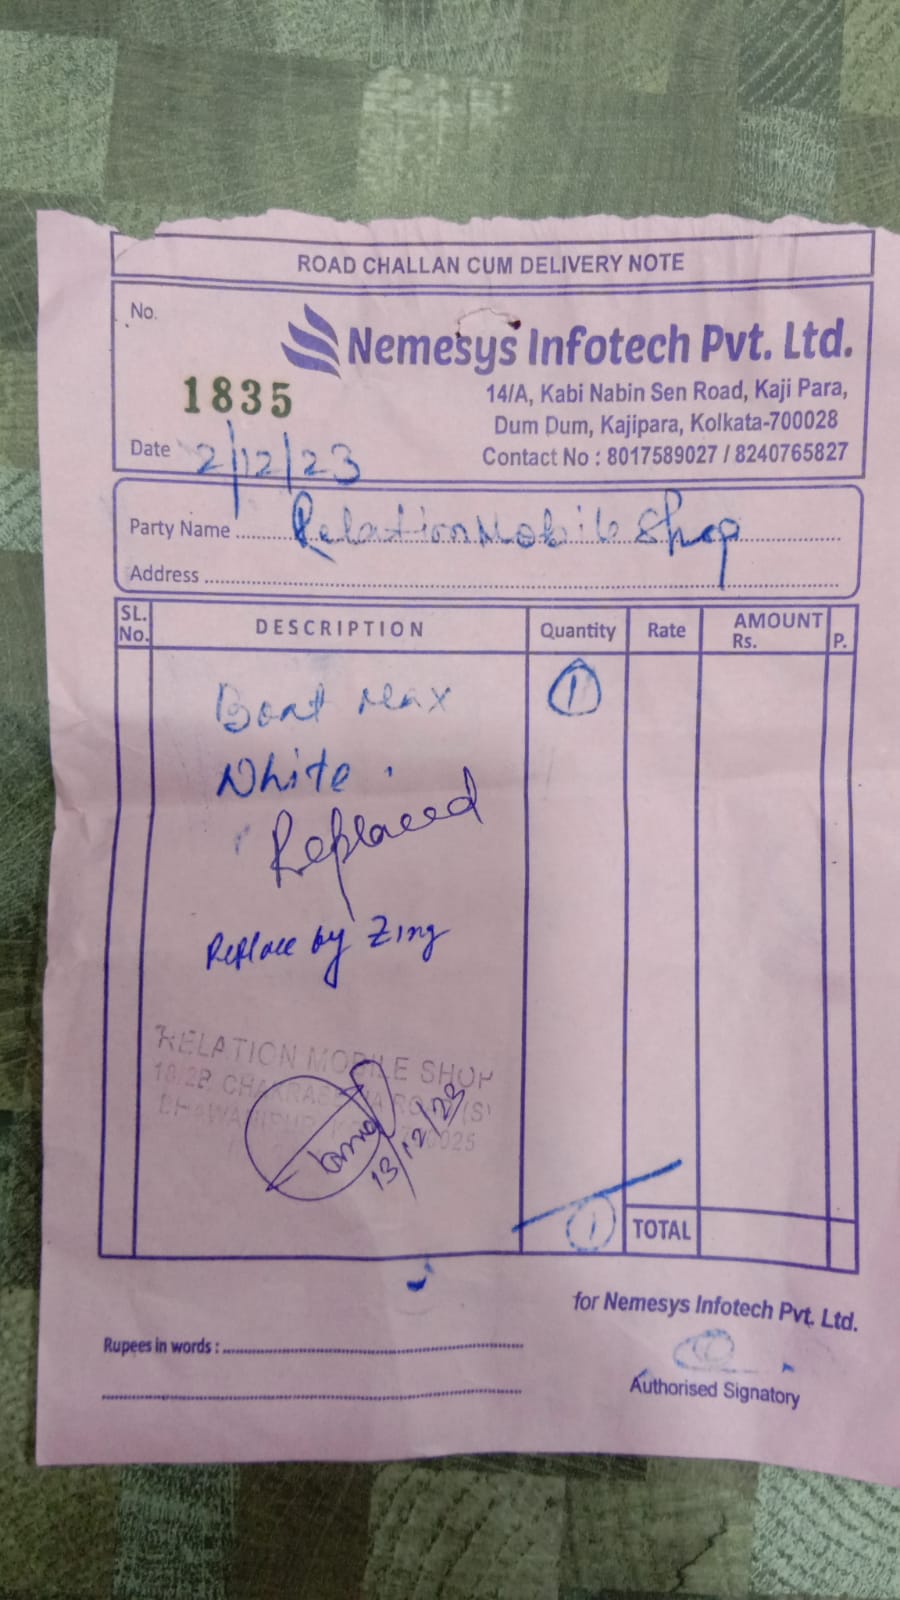 ROAD CHALLAN CUM DELIVERY NOTE
No.
Nemesys Infotech Pvt. Ltd.
1835
14/A, Kabi Nabin Sen Road, Kaji Para,
Dum Dum, Kajipara, Kolkata-700028
Contact No : 8017589027 / 8240765827
Date 2/12/23
Party Name Relation Mobile Shop
Address
SL. No. DESCRIPTION Quantity Rate AMOUNT Rs. P.
Boat 1
White.
Replaced
Replace by Zing
RELATION MOBILE SHOP
13/12/23
1 TOTAL
for Nemesys Infotech Pvt. Ltd.
Rupees in words :
Authorised Signatory